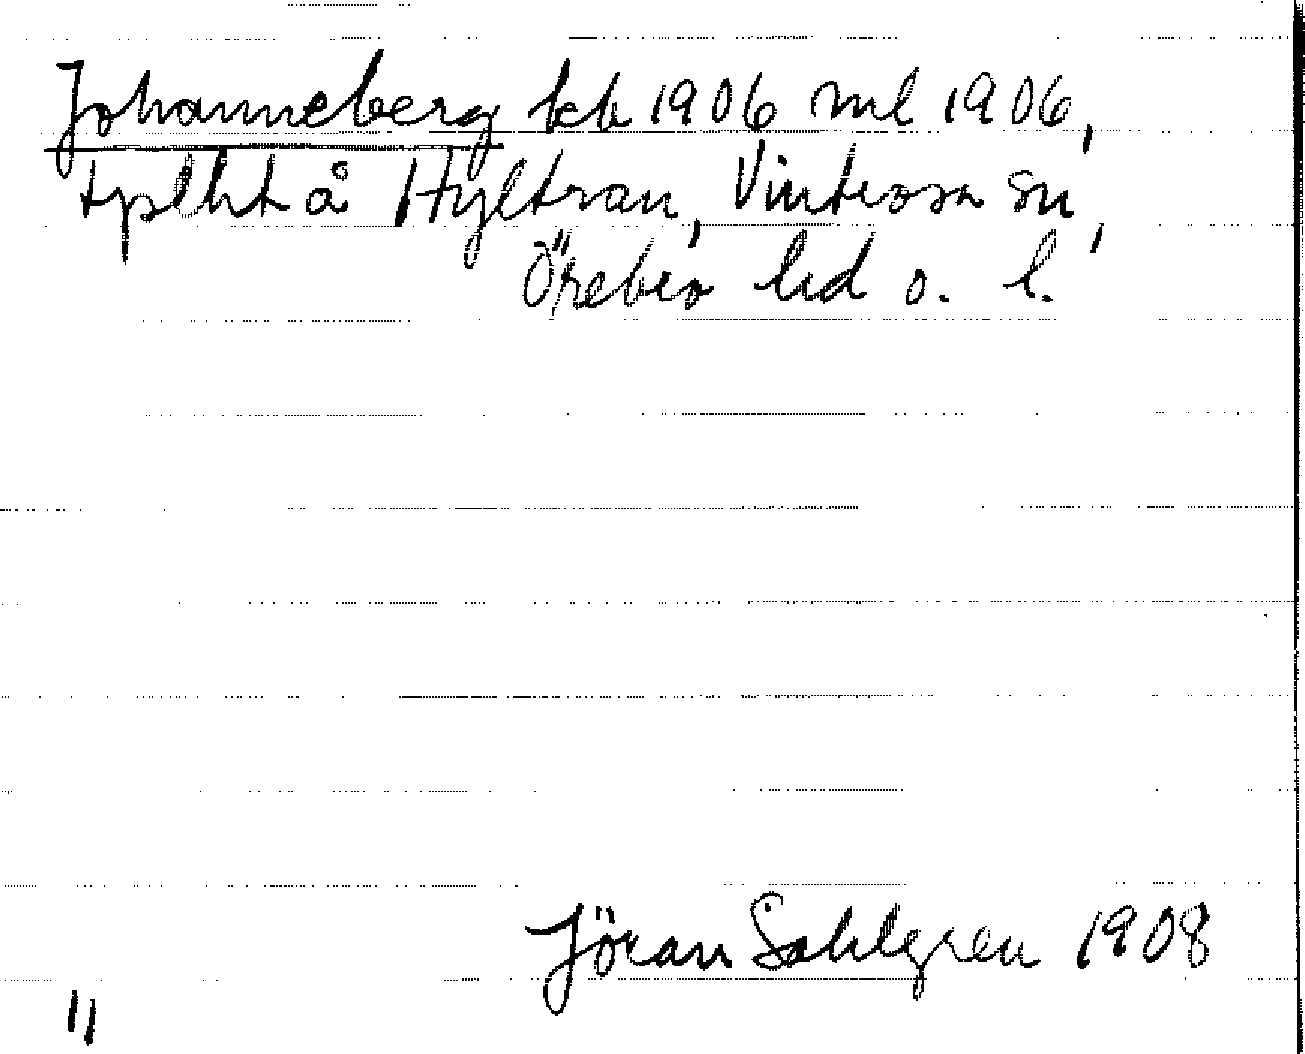 Johanneberg kb 1906 ml 1906,
tplht å Hyltran, Vintrosa sn,
Örebro hd o. l.
Jöran Sahlgren 1908
"